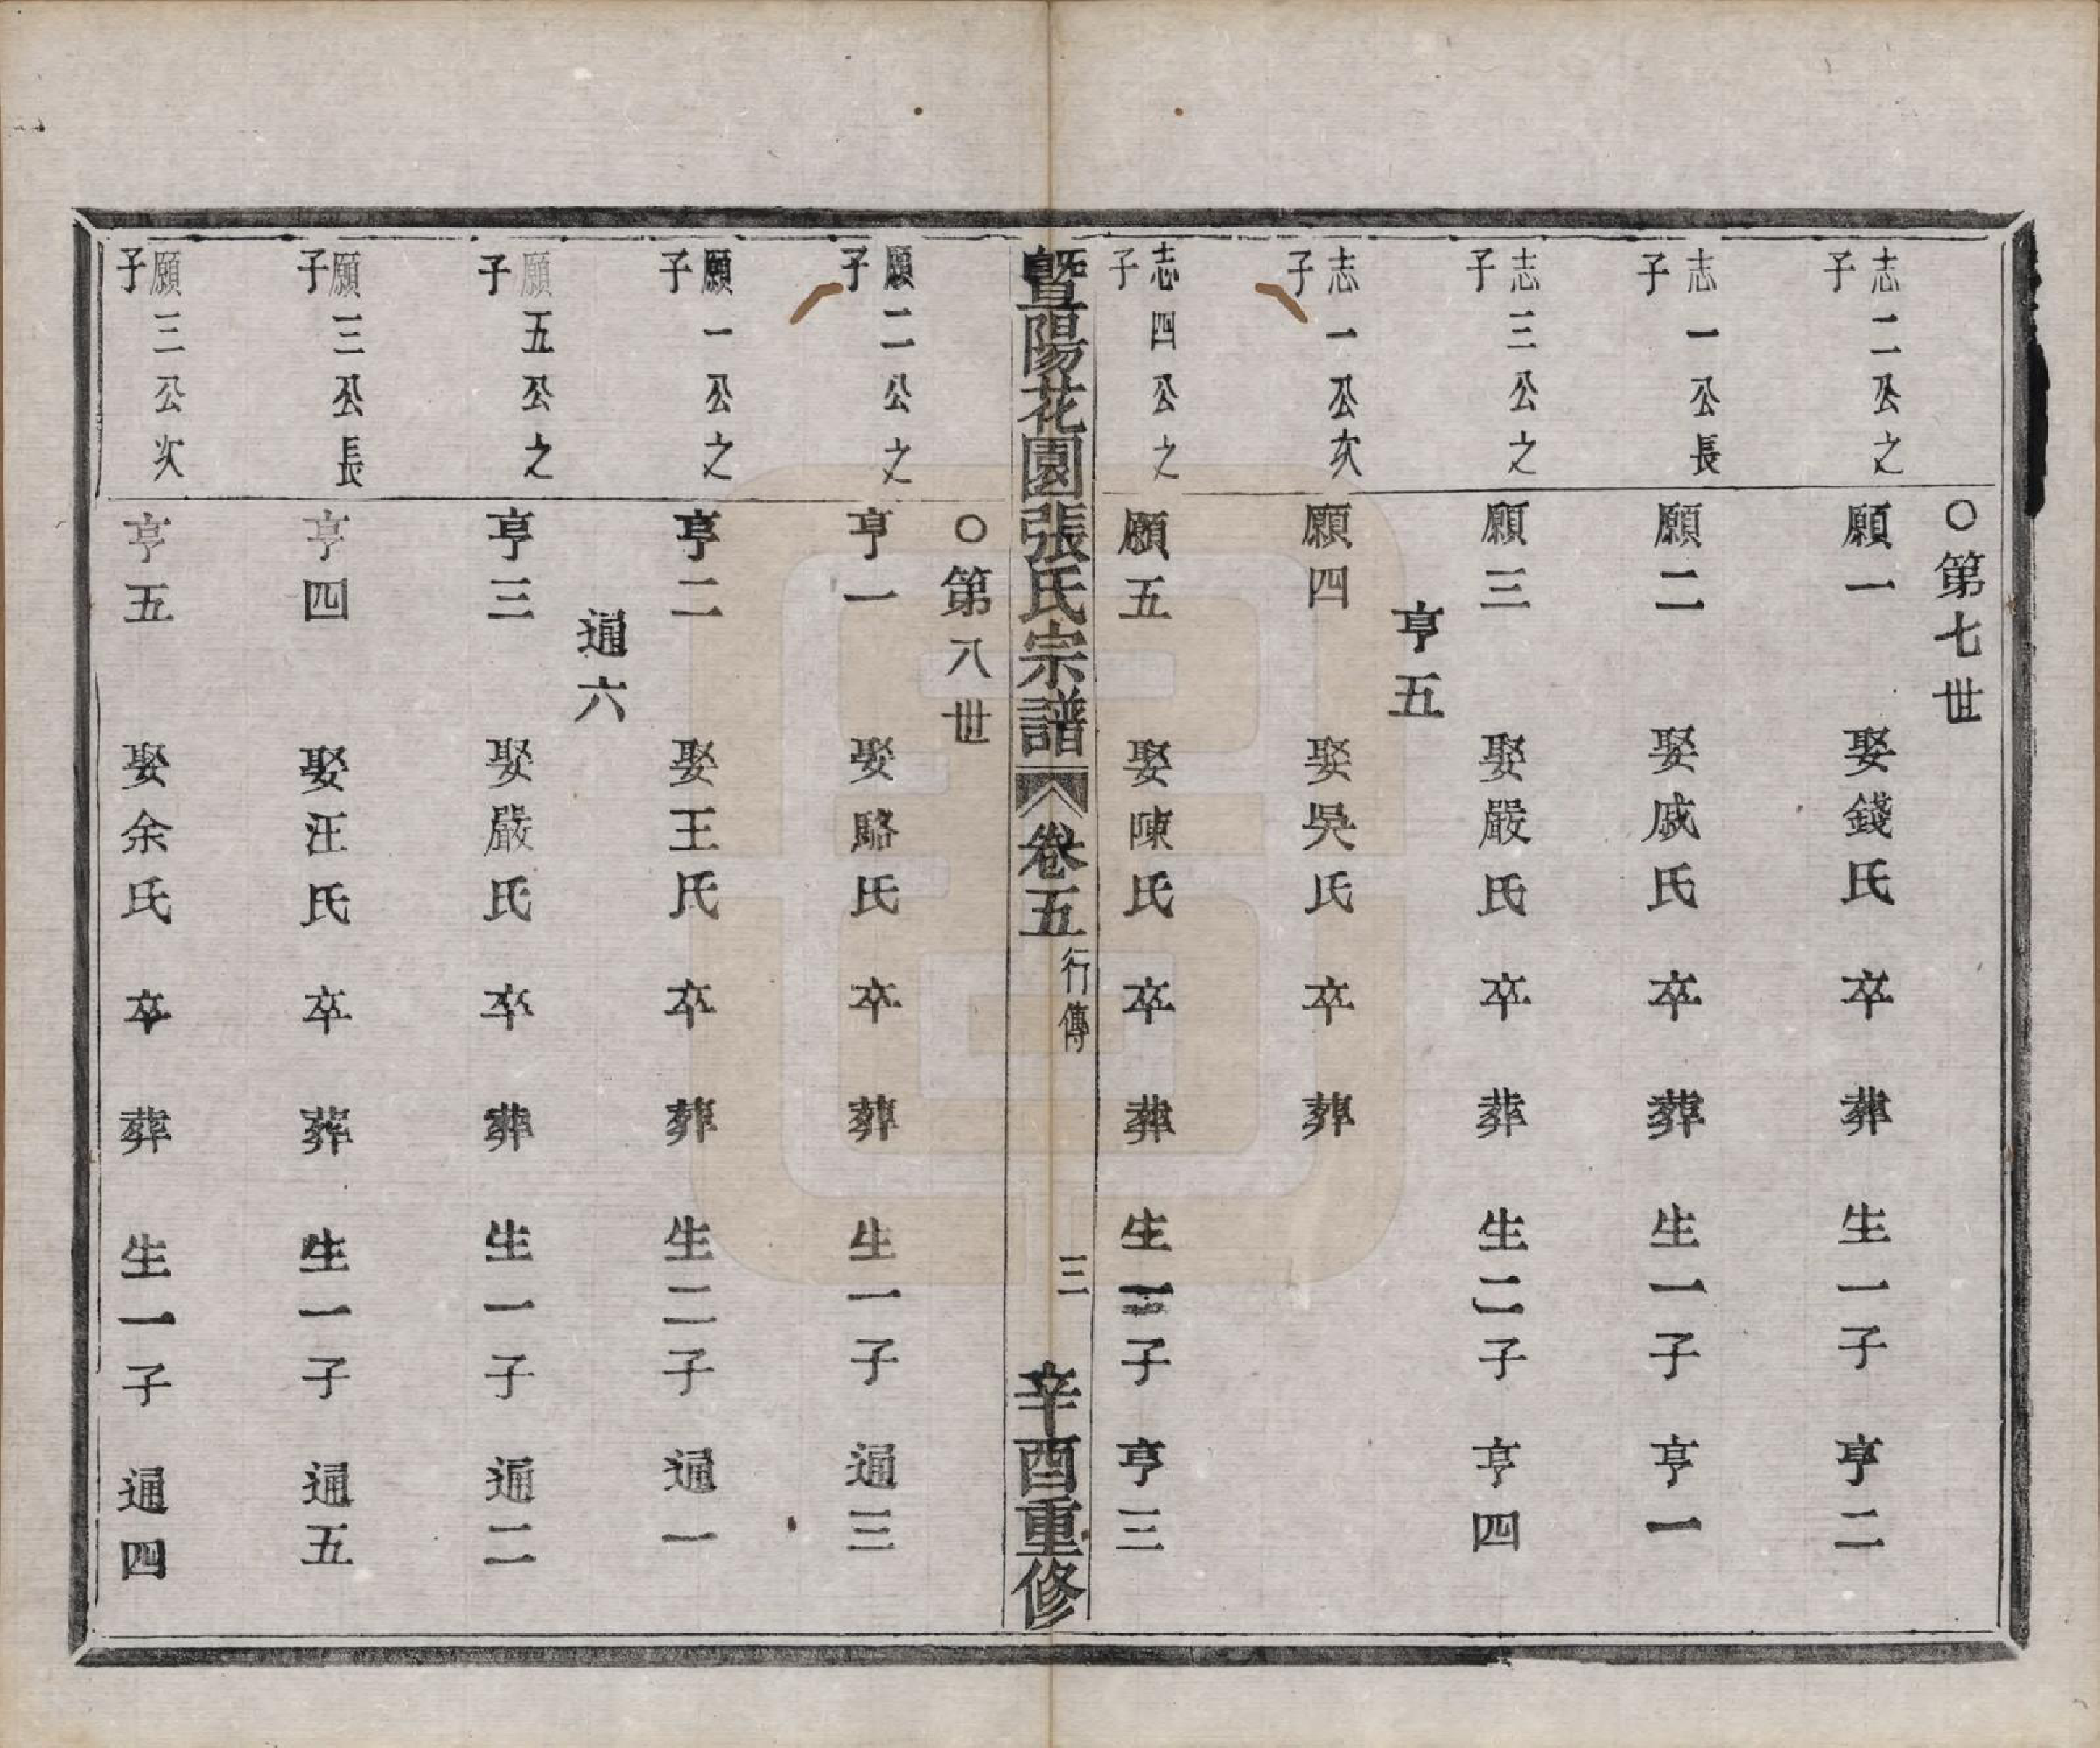 ○第七世
志二公之子
願一 娶錢氏 卒 葬 生一子 亨二
志一公長子
願二 娶戚氏 卒 葬 生一子 亨一
志三公之子
願三 娶嚴氏 卒 葬 生二子 亨四
亨五
志一公次子
願四 娶吳氏 卒 葬
志四公之子
願五 娶陳氏 卒 葬 生一子 亨三
暨陽花園張氏宗譜 卷五 行傳 三 辛酉重修
○第八世
願二公之子
亨一 娶駱氏 卒 葬 生一子 通三
願一公之子
亨二 娶王氏 卒 葬 生二子 通一
通六
願五公之子
亨三 娶嚴氏 卒 葬 生一子 通二
願三公長子
亨四 娶汪氏 卒 葬 生一子 通五
願三公次子
亨五 娶余氏 卒 葬 生一子 通四